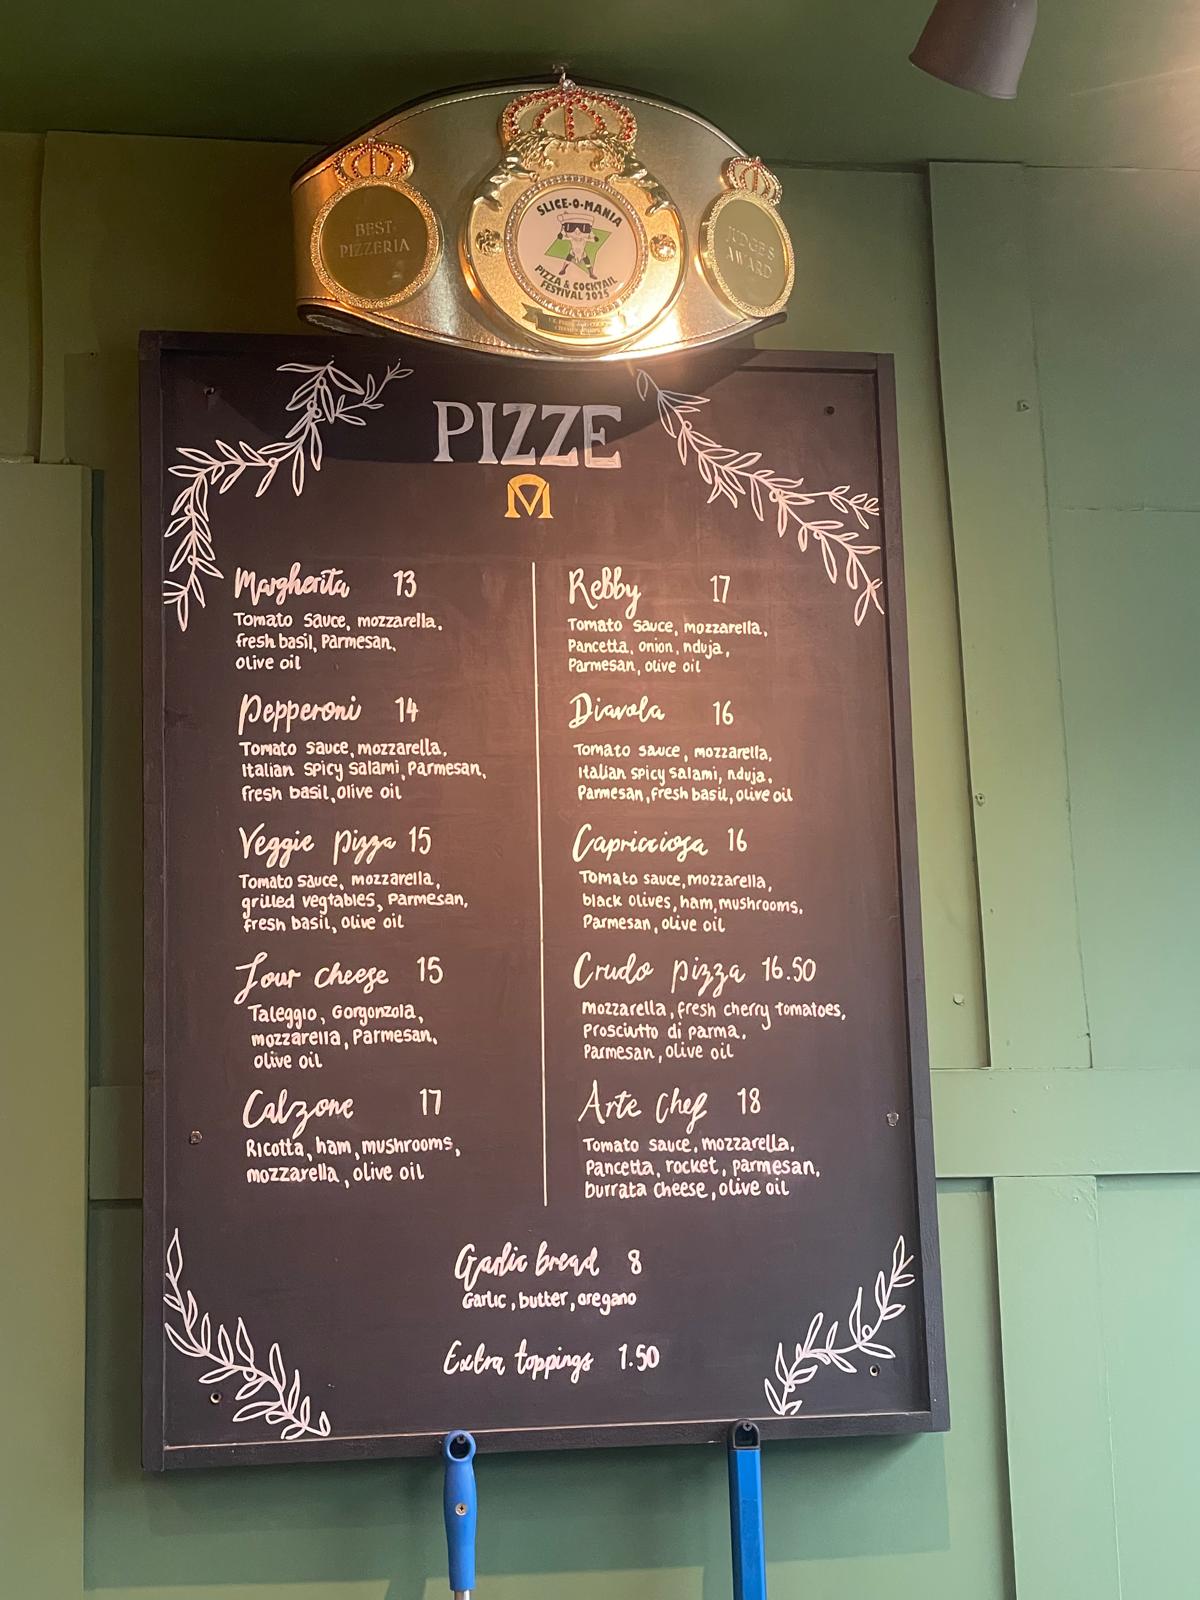 BEST
PIZZERIA
SLICE-O-MANIA
PIZZA & COCKTAIL
FESTIVAL 2025
JUDGES
AWARD
PIZZE
Margherita 13
Tomato sauce, mozzarella,
fresh basil, Parmesan,
olive oil
Pepperoni 14
Tomato sauce, mozzarella,
Italian spicy salami, Parmesan,
fresh basil, olive oil
Veggie pizza 15
Tomato sauce, mozzarella,
grilled vegtables, Parmesan,
fresh basil, olive oil
Four cheese 15
Taleggio, Gorgonzola,
mozzarella, Parmesan,
olive oil
Calzone 17
Ricotta, ham, mushrooms,
mozzarella, olive oil
Rebby 17
Tomato sauce, mozzarella,
Pancetta, onion, nduja,
Parmesan, olive oil
Diavola 16
Tomato sauce, mozzarella,
Italian spicy salami, nduja,
Parmesan, fresh basil, olive oil
Capricciosa 16
Tomato sauce, mozzarella,
black olives, ham, mushrooms,
Parmesan, olive oil
Crudo pizza 16.50
mozzarella, fresh cherry tomatoes,
Prosciutto di parma,
Parmesan, olive oil
Arte chef 18
Tomato sauce, mozzarella,
Pancetta, rocket, parmesan,
burrata cheese, olive oil
Garlic bread 8
Garlic, butter, oregano
Extra toppings 1.50